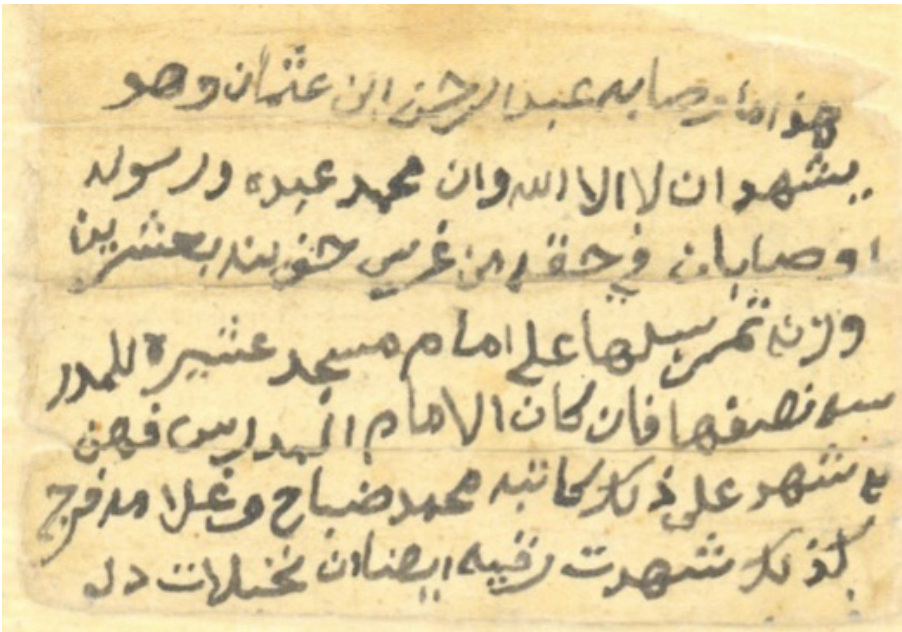 هذا ما وصا به عبد الرحمن ابن عثمان وهو
يشهد ان لا اله الا الله وان محمد عبده ورسوله
اوصا بان في حقه من غرس بعشرين
وزنة تمر سبلها على امام مسجد عشيرة للمدر
سه نصفها فان كان الامام المدرس فهن
شهد على ذلك كاتبه محمد ضباح وغلامه فرج
كذلك شهدت رقيه ايضا ان نخيلات